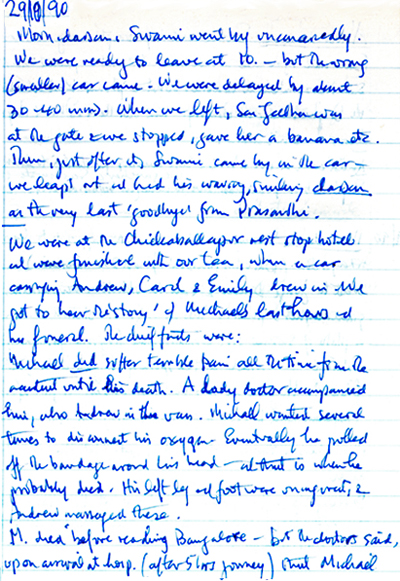 29/8/90
Morn. darsan, Swami went by unconcernedly.
We were ready to leave at 10. - but the wrong
(smaller) car came. We were delayed by about
30-40 mins. When we left, Sai Geetha was
at the gate & we stopped, gave her a banana etc.
Then, just after, Swami came by in the car -
we leapt out and had his waving, smiling darsan
as the very last 'goodbye' from Prasanthi.
We were at the Chickaballapur rest stop hotel
and were finished with our tea, when a car
carrying Andrew, Carol & Emily drew in. We
got to hear the 'story' of Michael's last hours and
his funeral. The chief facts were:
Michael did suffer terrible pain all the time from the
accident until his death. A lady doctor accompanied
him, also Andrew in the van. Michael wanted several
times to disconnect his oxygen. Eventually he pulled
off the bandage around his head - and that is when he
probably died. His left leg and foot were
Andrew massaged these.
M. died before reaching Bangalore - but the doctors said,
upon arrival at hosp. (after 5 hrs journey) that Michael